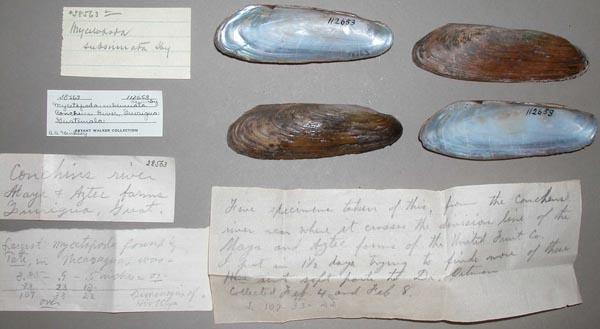 28563
Mycetopoda
subsinuata Sby
112653
112653
28563 112653
Mycetopoda subsinuata
Conchins River, Quirigua
Guatemala.
BRYANT WALKER COLLECTION
28563
Conchins river
Maya & Aztec farms
Quirigua, Guat.
Largest Mycetopoda found by
Tate, in Nicaragua, was -
over
Dimensions of
Five specimens taken of this, from the Conchins
river near where it crosses the division line of the
Maya and Aztec farms of the United Fruit Co.
I put in 1½ days trying to find more of these
and sent part to Dr.
Collected Feb. 4 and Feb 8.
107 33 22